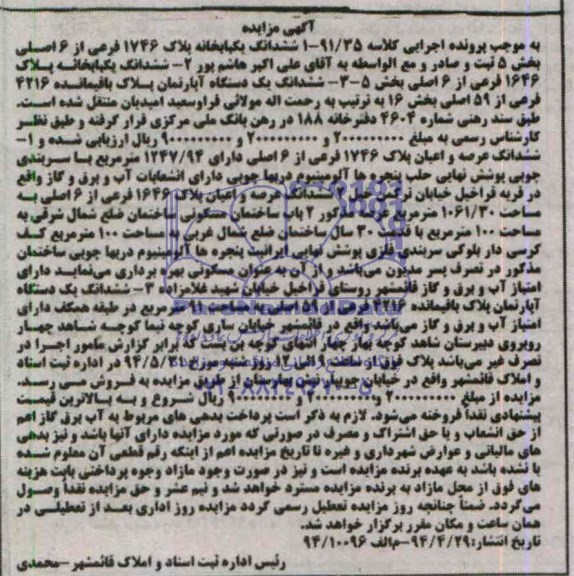 آگهی مزایده
به موجب پرونده اجرایی کلاسه ۹۱/۳۵-۱ ششدانگ یکبابخانه پلاک ۱۷۴۶ فرعی از ۶ اصلی
بخش ۵ ثبت و صادر و مع الواسطه به آقای علی اکبر هاشم پور ۲- ششدانگ یکبابخانه پلاک
۱۶۴۶ فرعی از ۶ اصلی بخش ۵-۳- ششدانگ یک دستگاه آپارتمان پلاک باقیمانده ۴۲۱۶
فرعی از ۵۹ اصلی بخش ۱۶ به ترتیب به رحمت اله مولائی فراوسعید امیدیان منتقل شده است.
طبق سند رهنی شماره ۴۶۰۴ دفترخانه ۱۸۸ در رهن بانک ملی مرکزی قرار گرفته و طبق نظر
کارشناس رسمی به مبلغ و و ریال ارزیابی شده و ۱-
ششدانگ عرصه و اعیان پلاک ۱۷۴۶ فرعی از ۶ اصلی دارای ۱۲۴۷/۹۴ مترمربع با سربندی
چوبی پوشش نهایی حلب پنجره ها آلومینیوم دربها چوبی دارای انشعابات آب و برق و گاز واقع
در قریه فراخیل خیابان ششدانگ عرصه و اعیان پلاک ۱۶۴۶ فرعی از ۶ اصلی به
مساحت ۱۰۶۱/۳۰ مترمربع عرصه مذکور ۲ باب ساختمان مسکونی ساختمان ضلع شمال شرقی به
مساحت ۱۰۰ مترمربع با قدمت ۳۰ سال ساختمان ضلع شمال غربی به مساحت ۱۰۰ مترمربع کف
کرسی دار بلوکی سربندی فلزی پوشش نهایی ایرانیت پنجره ها آلومینیوم دربها چوبی ساختمان
مذکور در تصرف پسر مدیون می‌باشد و از آن به عنوان مسکونی بهره برداری می‌نماید دارای
امتیاز آب و برق و گاز قائمشهر روستای فراخیل خیابان شهید غلامزاده ۳- ششدانگ یک دستگاه
آپارتمان پلاک باقیمانده ۴۲۱۶ فرعی از ۵۹ اصلی به مساحت ۹۱ مترمربع در طبقه همکف دارای
امتیاز آب و برق و گاز می‌باشد واقع در قائمشهر خیابان ساری کوچه نیما کوچه شاهد چهار
روبروی دبیرستان شاهد کوچه یاس چهار انتهای کوچه بن بست برابر گزارش مامور اجرا در
تصرف غیر می‌باشد پلاک فوق از ساعت ۹ الی ۱۲ روز شنبه مورخ ۹۴/۵/۳۱ در اداره ثبت اسناد
و املاک قائمشهر واقع در خیابان جویبار نبش بهارستان از طریق مزایده به فروش می رسد.
مزایده از مبلغ و و ریال شروع و به بالاترین قیمت
پیشنهادی نقداً فروخته می‌شود. لازم به ذکر است پرداخت بدهی های مربوط به آب برق گاز اعم
از حق انشعاب و یا حق اشتراک و مصرف در صورتی که مورد مزایده دارای آنها باشد و نیز بدهی
های مالیاتی و عوارض شهرداری و غیره تا تاریخ مزایده اعم از اینکه رقم قطعی آن معلوم شده
یا نشده باشد به عهده برنده مزایده است و نیز در صورت وجود مازاد وجوه پرداختی بابت هزینه
های فوق از محل مازاد به برنده مزایده مسترد خواهد شد و نیم عشر و حق مزایده نقداً وصول
می‌گردد. ضمناً چنانچه روز مزایده تعطیل رسمی گردد مزایده روز اداری بعد از تعطیلی در
همان ساعت و مکان مقرر برگزار خواهد شد.
تاریخ انتشار: ۹۴/۴/۲۹-م‌الف ۹۴/۱۰۰۹۶
رئیس اداره ثبت اسناد و املاک قائمشهر -محمدی